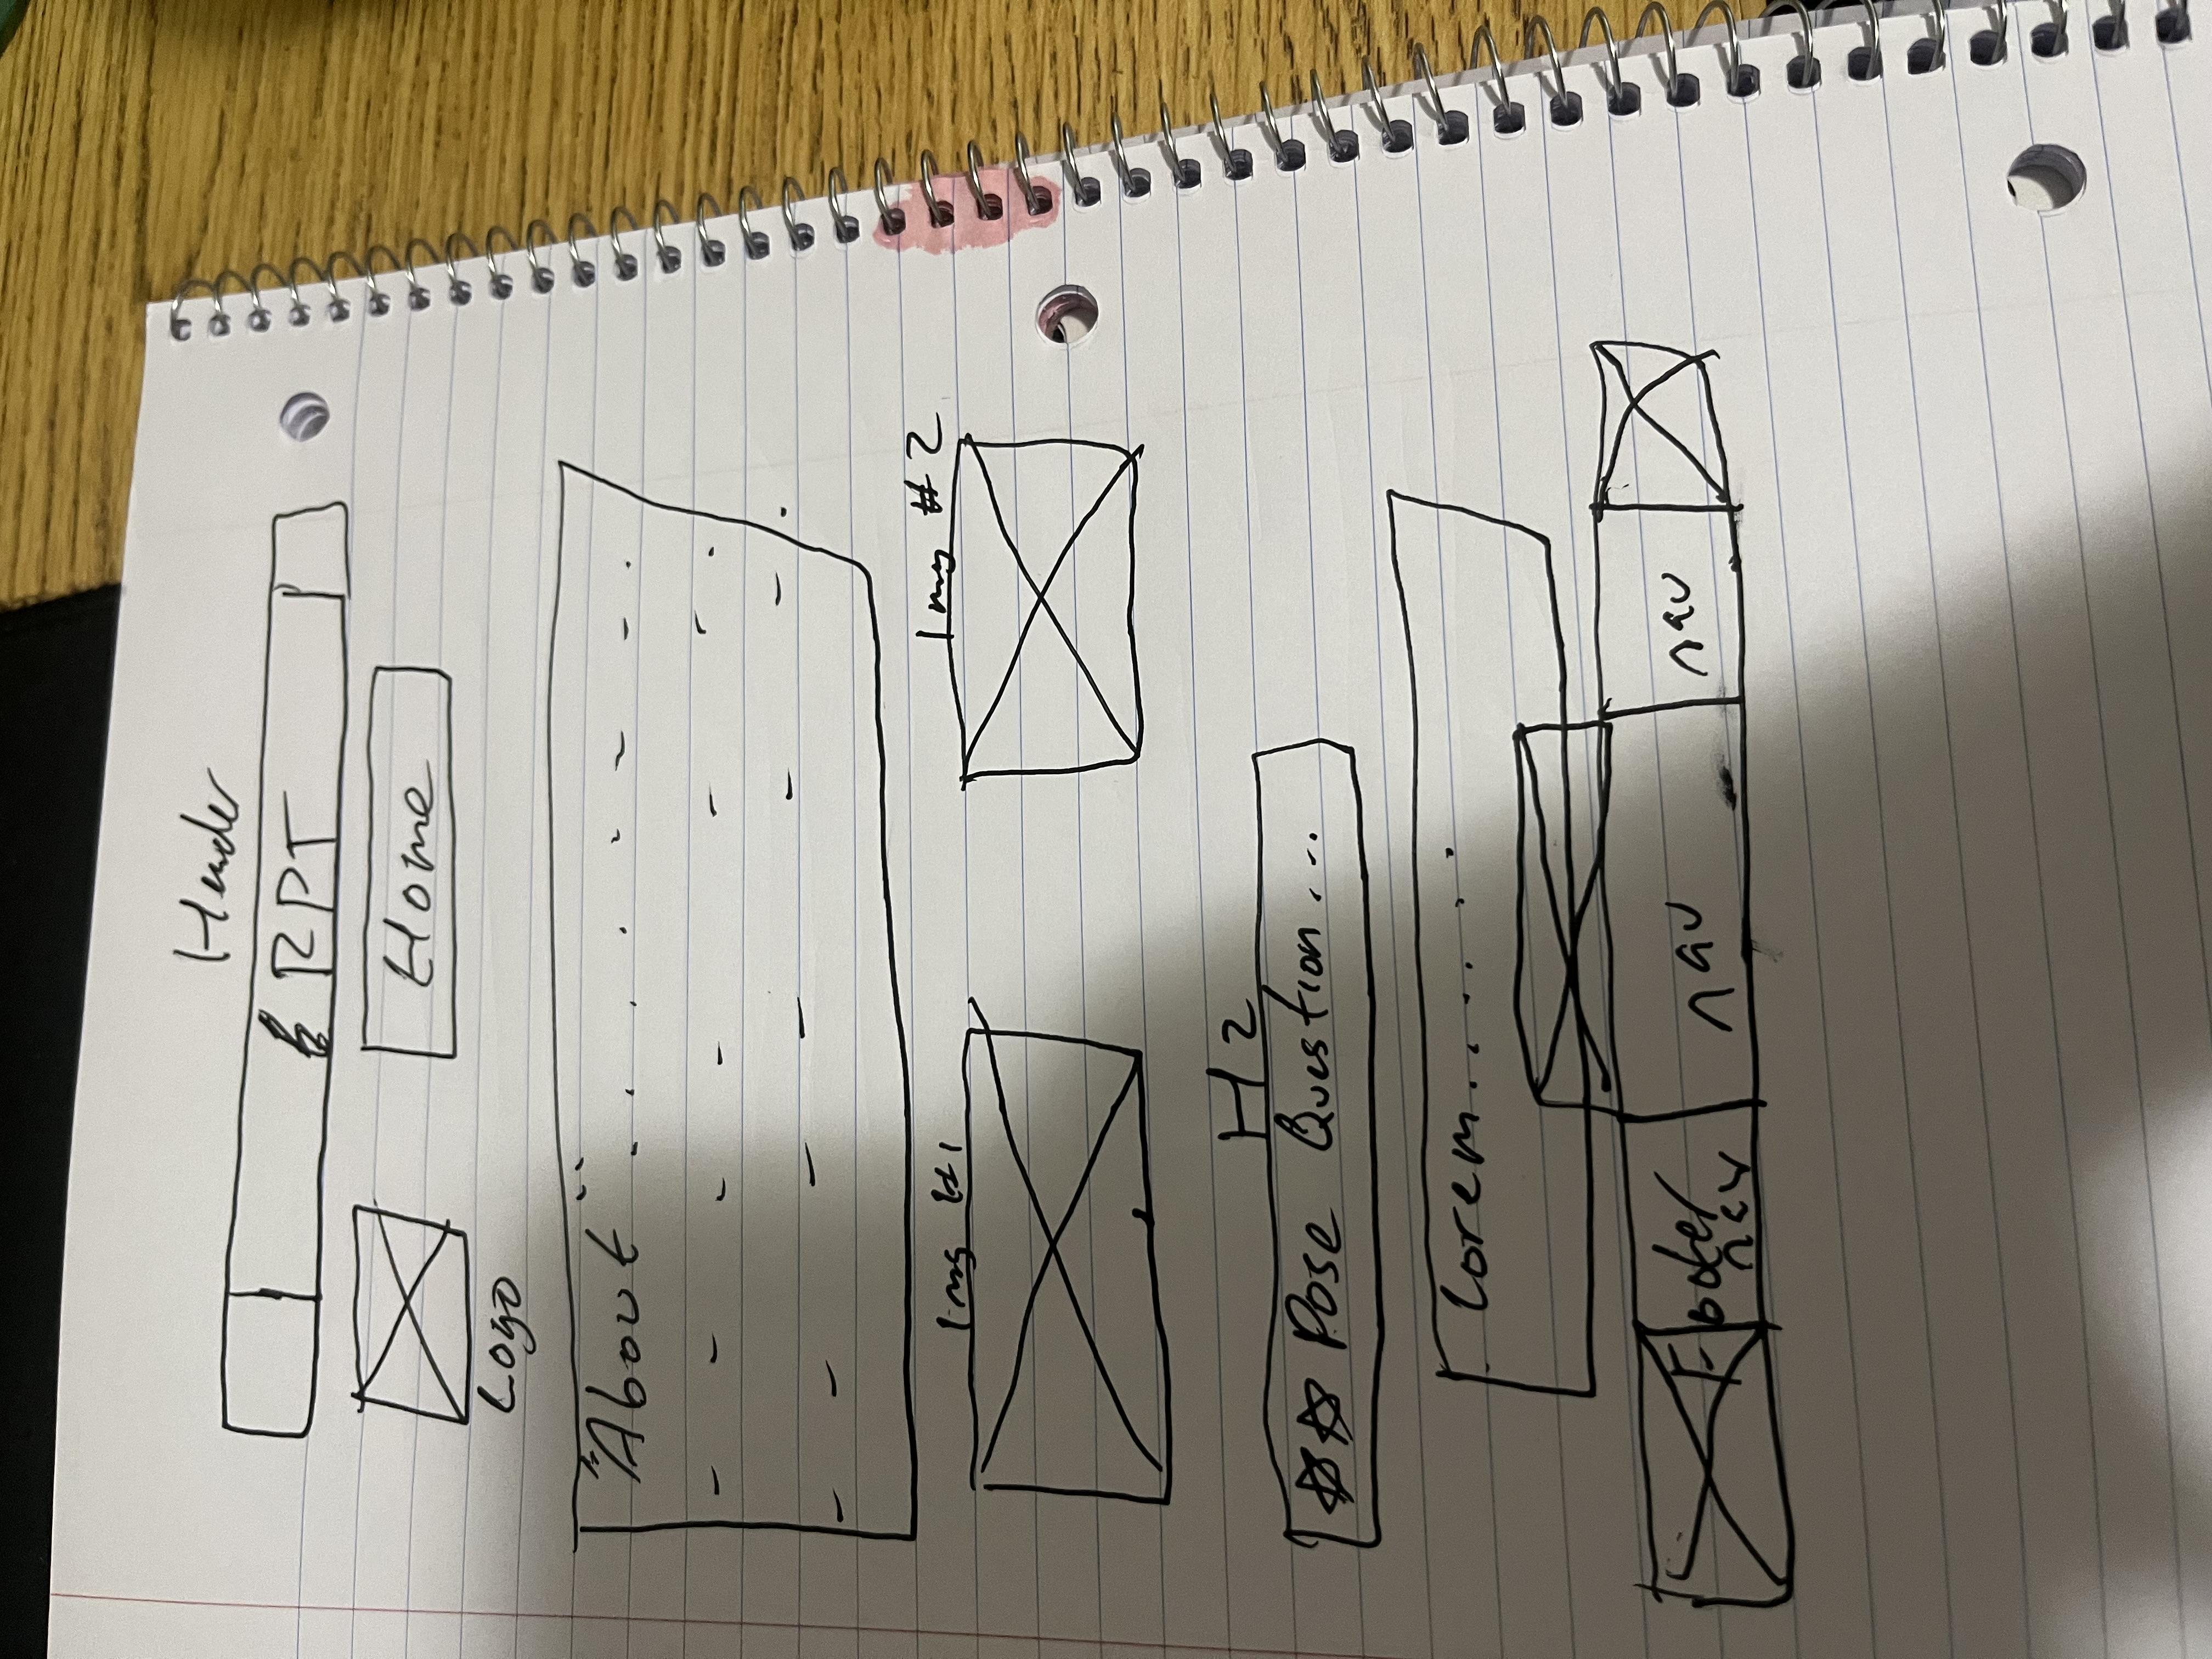 Header
RPT
Home
Logo
"About" . . . . . - - .
Img #1
Img #2
H2
☆☆ Pose Question...
Lorem......
Footer
nav
nav
nav